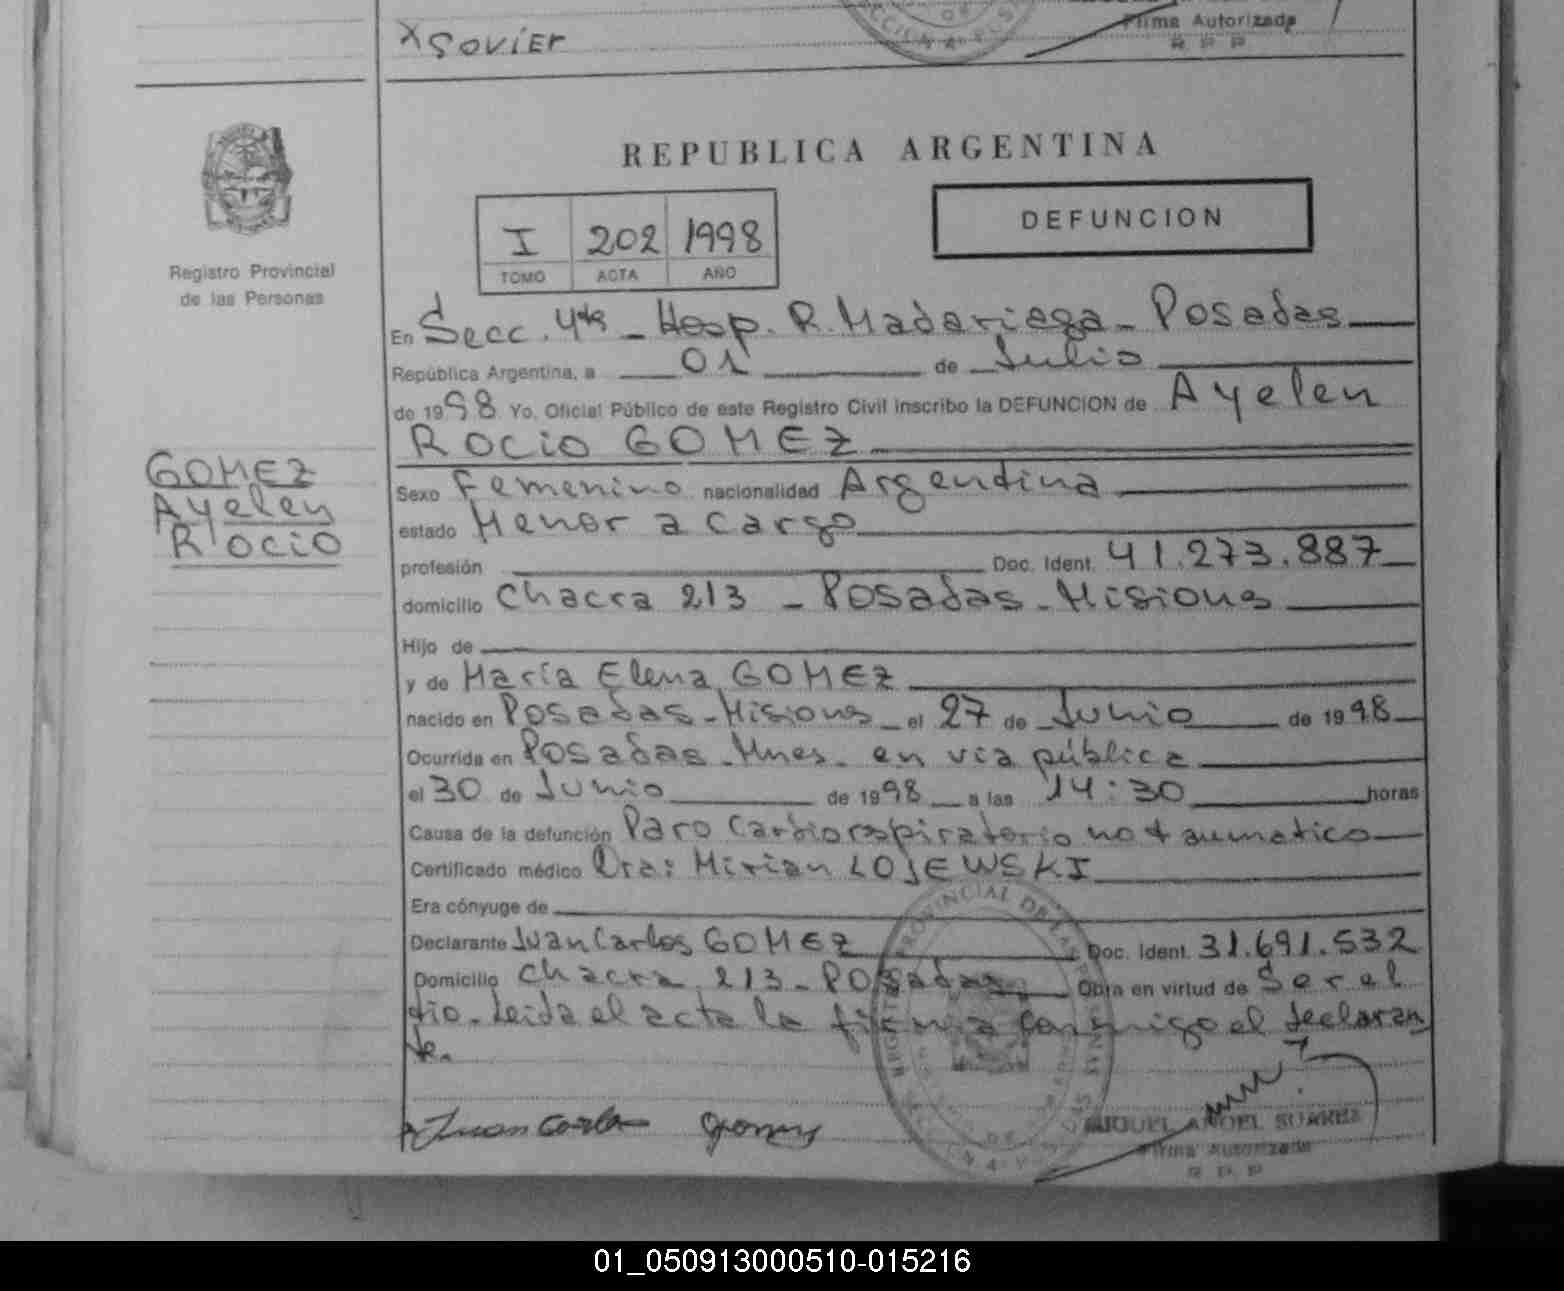 X SOVIER
Firma Autorizada
R P P
REPUBLICA ARGENTINA
I 202 1998
TOMO ACTA AÑO
DEFUNCION
Registro Provincial
de las Personas
En Secc. 4ta - Hosp. R. Madariaga - Posadas
República Argentina, a 01 de Julio
de 1998 Yo, Oficial Público de este Registro Civil inscribo la DEFUNCION de Ayelen
ROCIO GOMEZ
GOMEZ
Ayelen
ROCIO
Sexo Femenino nacionalidad Argentina
estado Menor a cargo
profesión Doc. Ident. 41.273.887
domicilio Chacra 213 - Posadas - Misiones
Hijo de
y de María Elena GOMEZ
nacido en Posadas - Misiones el 27 de Junio de 1998
Ocurrida en Posadas - Mnes - en vía pública
el 30 de Junio de 1998 a las 14:30 horas
Causa de la defunción Paro Cardiorespiratorio no traumatico
Certificado médico Dra: Mirian LOJEWSKI
Era cónyuge de
Declarante Juan Carlos GOMEZ Doc. Ident. 31.691.532
Domicilio Chacra 213 - Posadas Obra en virtud de Ser el
tio - Leida el acta la firma conmigo el declaran
te.
Juan Carlos Gomez
MIGUEL ANGEL SUAREZ
Firma Autorizada
R P P
01_050913000510-015216